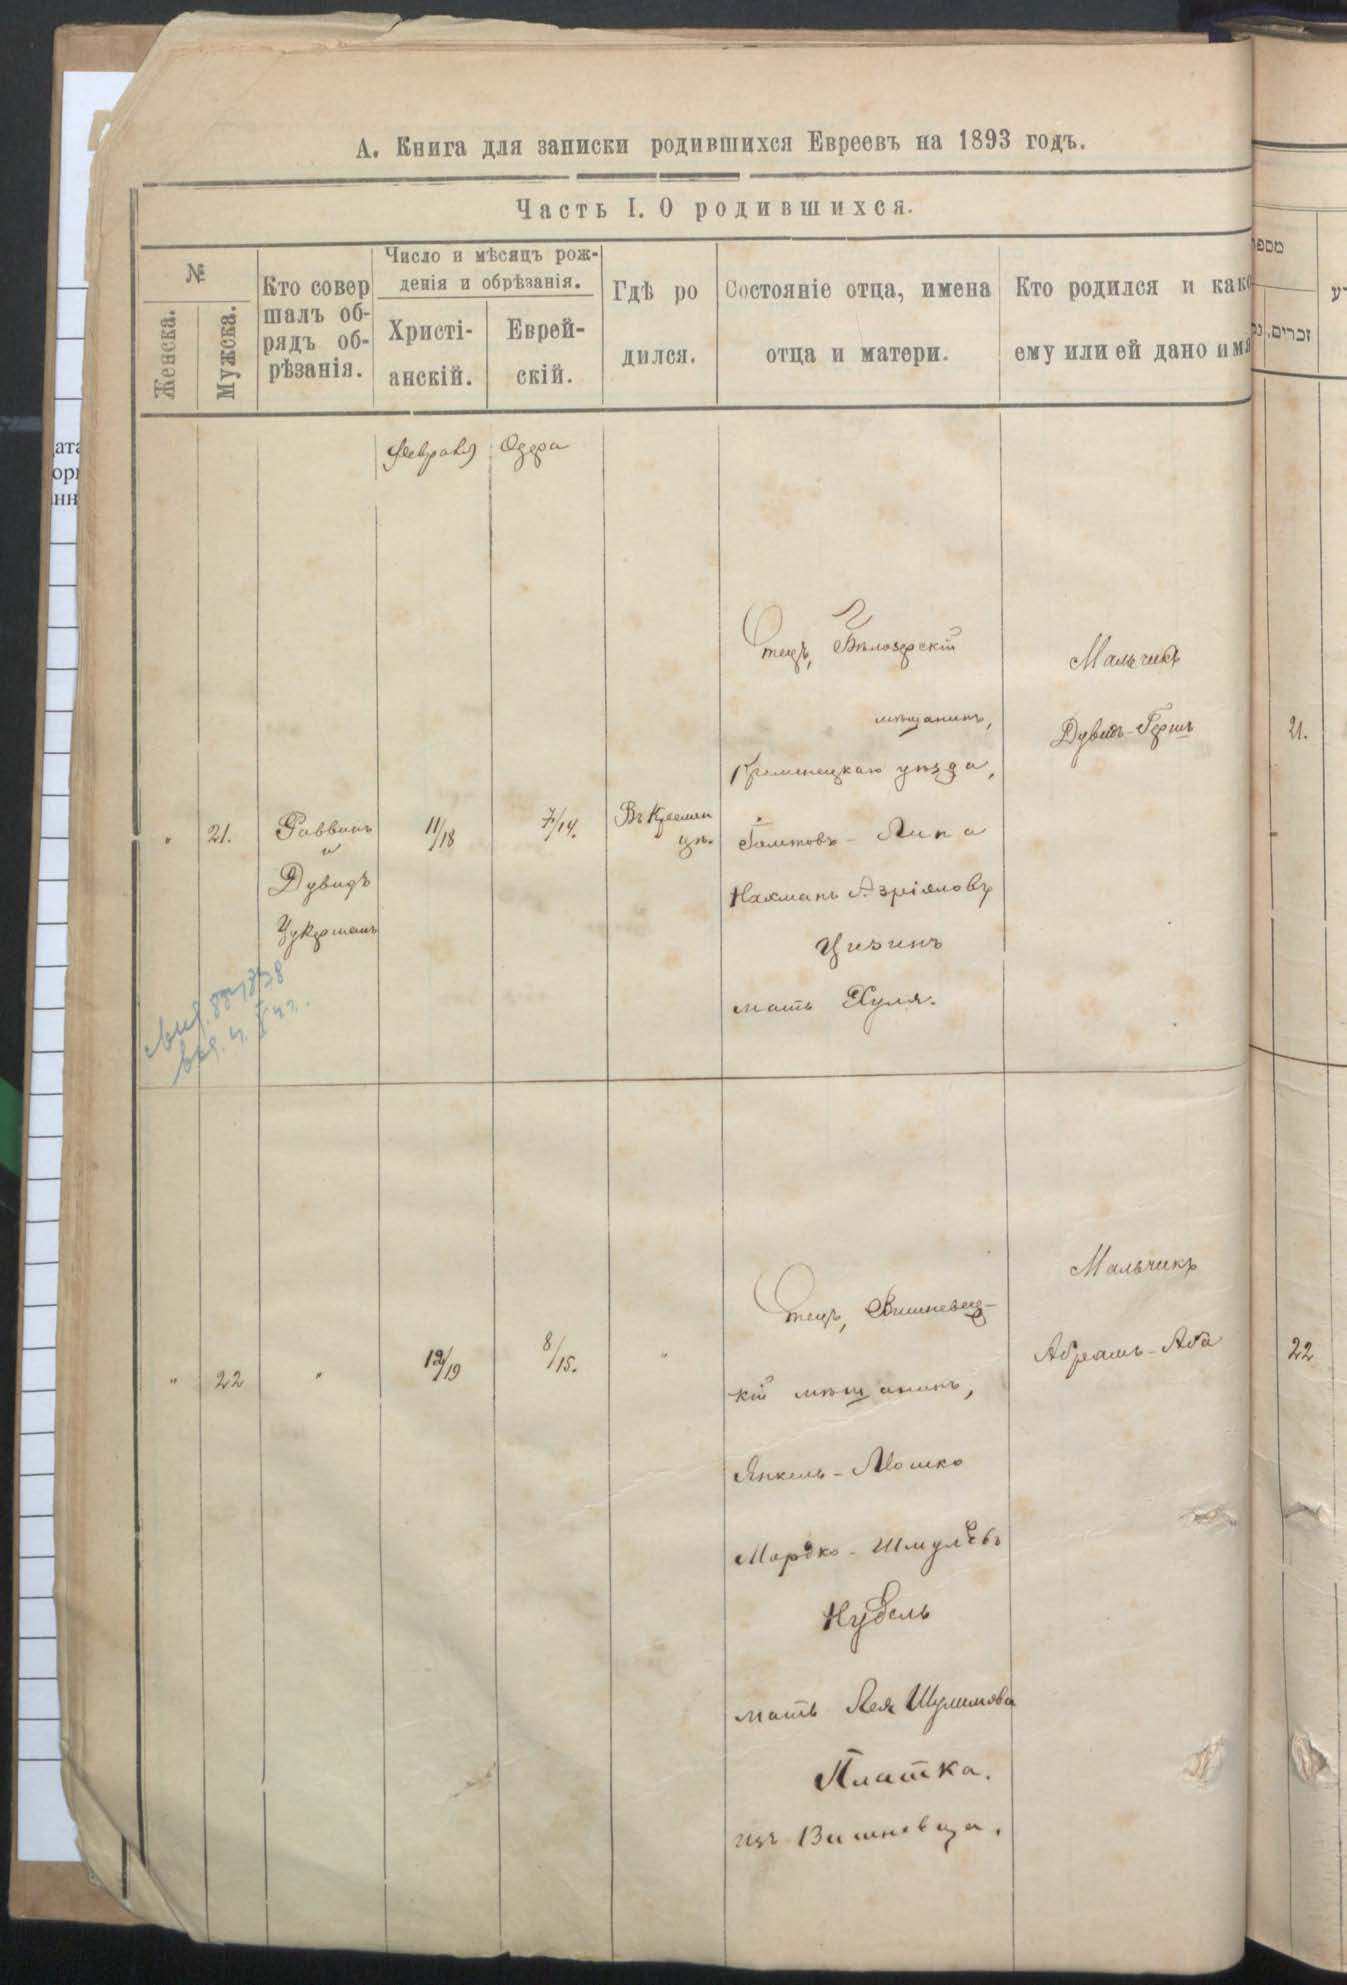 А. Книга для записки родившихся Евреевъ на 1893 годъ.
Часть I. О родившихся.
№
Женска.
Мужска.
Кто совер
шалъ об-
рядъ об-
рѣзанія.
Число и мѣсяцъ рож-
денія и обрѣзанія.
Христі-
анскій.
Еврей-
скій.
Гдѣ ро
дился.
Состояніе отца, имена
отца и матери.
Кто родился и како
ему или ей дано имя
Февраля
Одера
"
21.
Раввинъ
и
Дувидъ
Цукерманъ
11/18
7/14.
Въ Кремен
цѣ.
Отецъ, Бѣлозерскій
мѣщанинъ,
Кременецкаго уѣзда,
Липа
Нахманъ Азріяловъ
Цизинъ
мать Хуля.
Мальчикъ
Дувидъ-Гершъ
"
22
"
12/19
8/15.
"
Отецъ, Вишневец-
кій мѣщанинъ,
Янкель-Мошко
Мордко-Шмулевъ
Нудель
мать Лея Шулимова
Платка.
изъ Вишневца.
Мальчикъ
Абрамъ-Аба
מספר
זכרים.
21.
22
ата
ори
нн